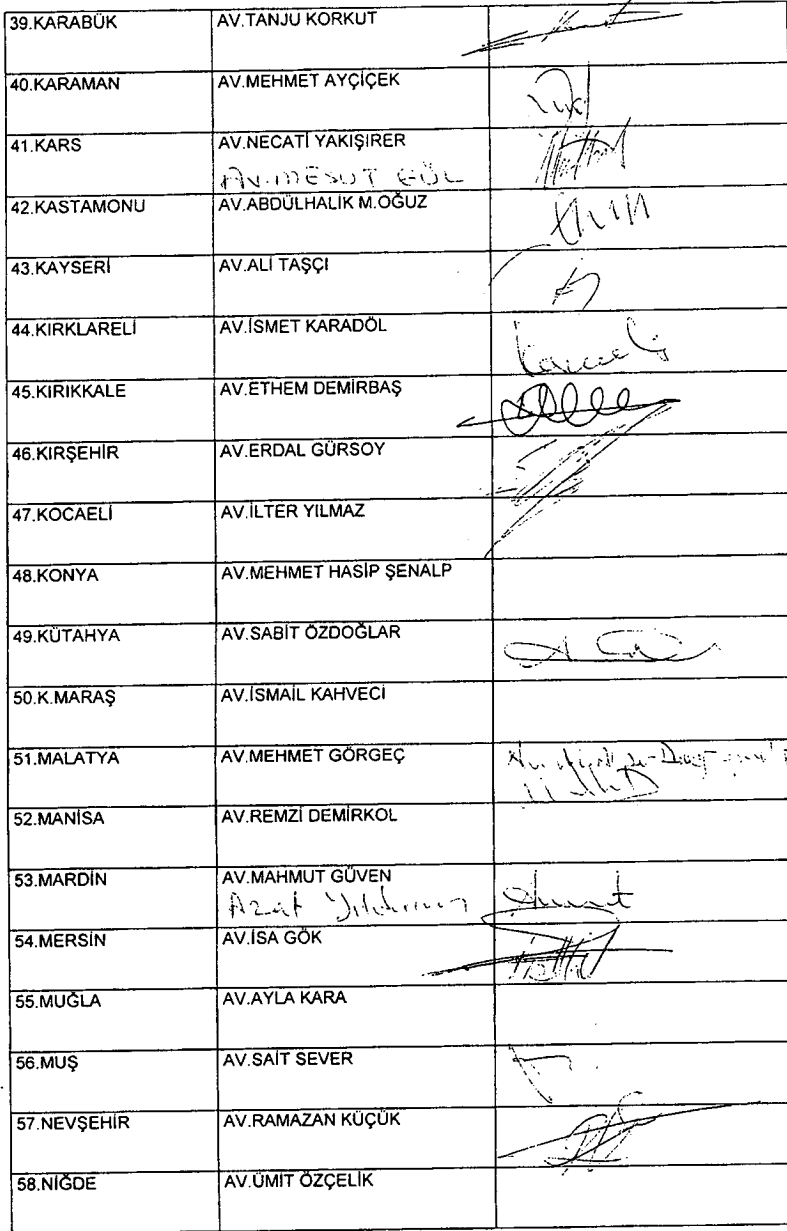 39.KARABÜK AV.TANJU KORKUT
40.KARAMAN AV.MEHMET AYÇİÇEK
41.KARS AV.NECATİ YAKIŞIRER
AV.MESUT GÜL
42.KASTAMONU AV.ABDÜLHALİK M.OĞUZ
43.KAYSERİ AV.ALİ TAŞÇI
44.KIRKLARELİ AV.İSMET KARADÖL
45.KIRIKKALE AV.ETHEM DEMİRBAŞ
46.KIRŞEHİR AV.ERDAL GÜRSOY
47.KOCAELİ AV.İLTER YILMAZ
48.KONYA AV.MEHMET HASİP ŞENALP
49.KÜTAHYA AV.SABİT ÖZDOĞLAR
50.K.MARAŞ AV.İSMAİL KAHVECİ
51.MALATYA AV.MEHMET GÖRGEÇ
52.MANİSA AV.REMZİ DEMİRKOL
53.MARDİN AV.MAHMUT GÜVEN
Azat Yıldırım
54.MERSİN AV.İSA GÖK
55.MUĞLA AV.AYLA KARA
56.MUŞ AV.SAİT SEVER
57.NEVŞEHİR AV.RAMAZAN KÜÇÜK
58.NİĞDE AV.ÜMİT ÖZÇELİK